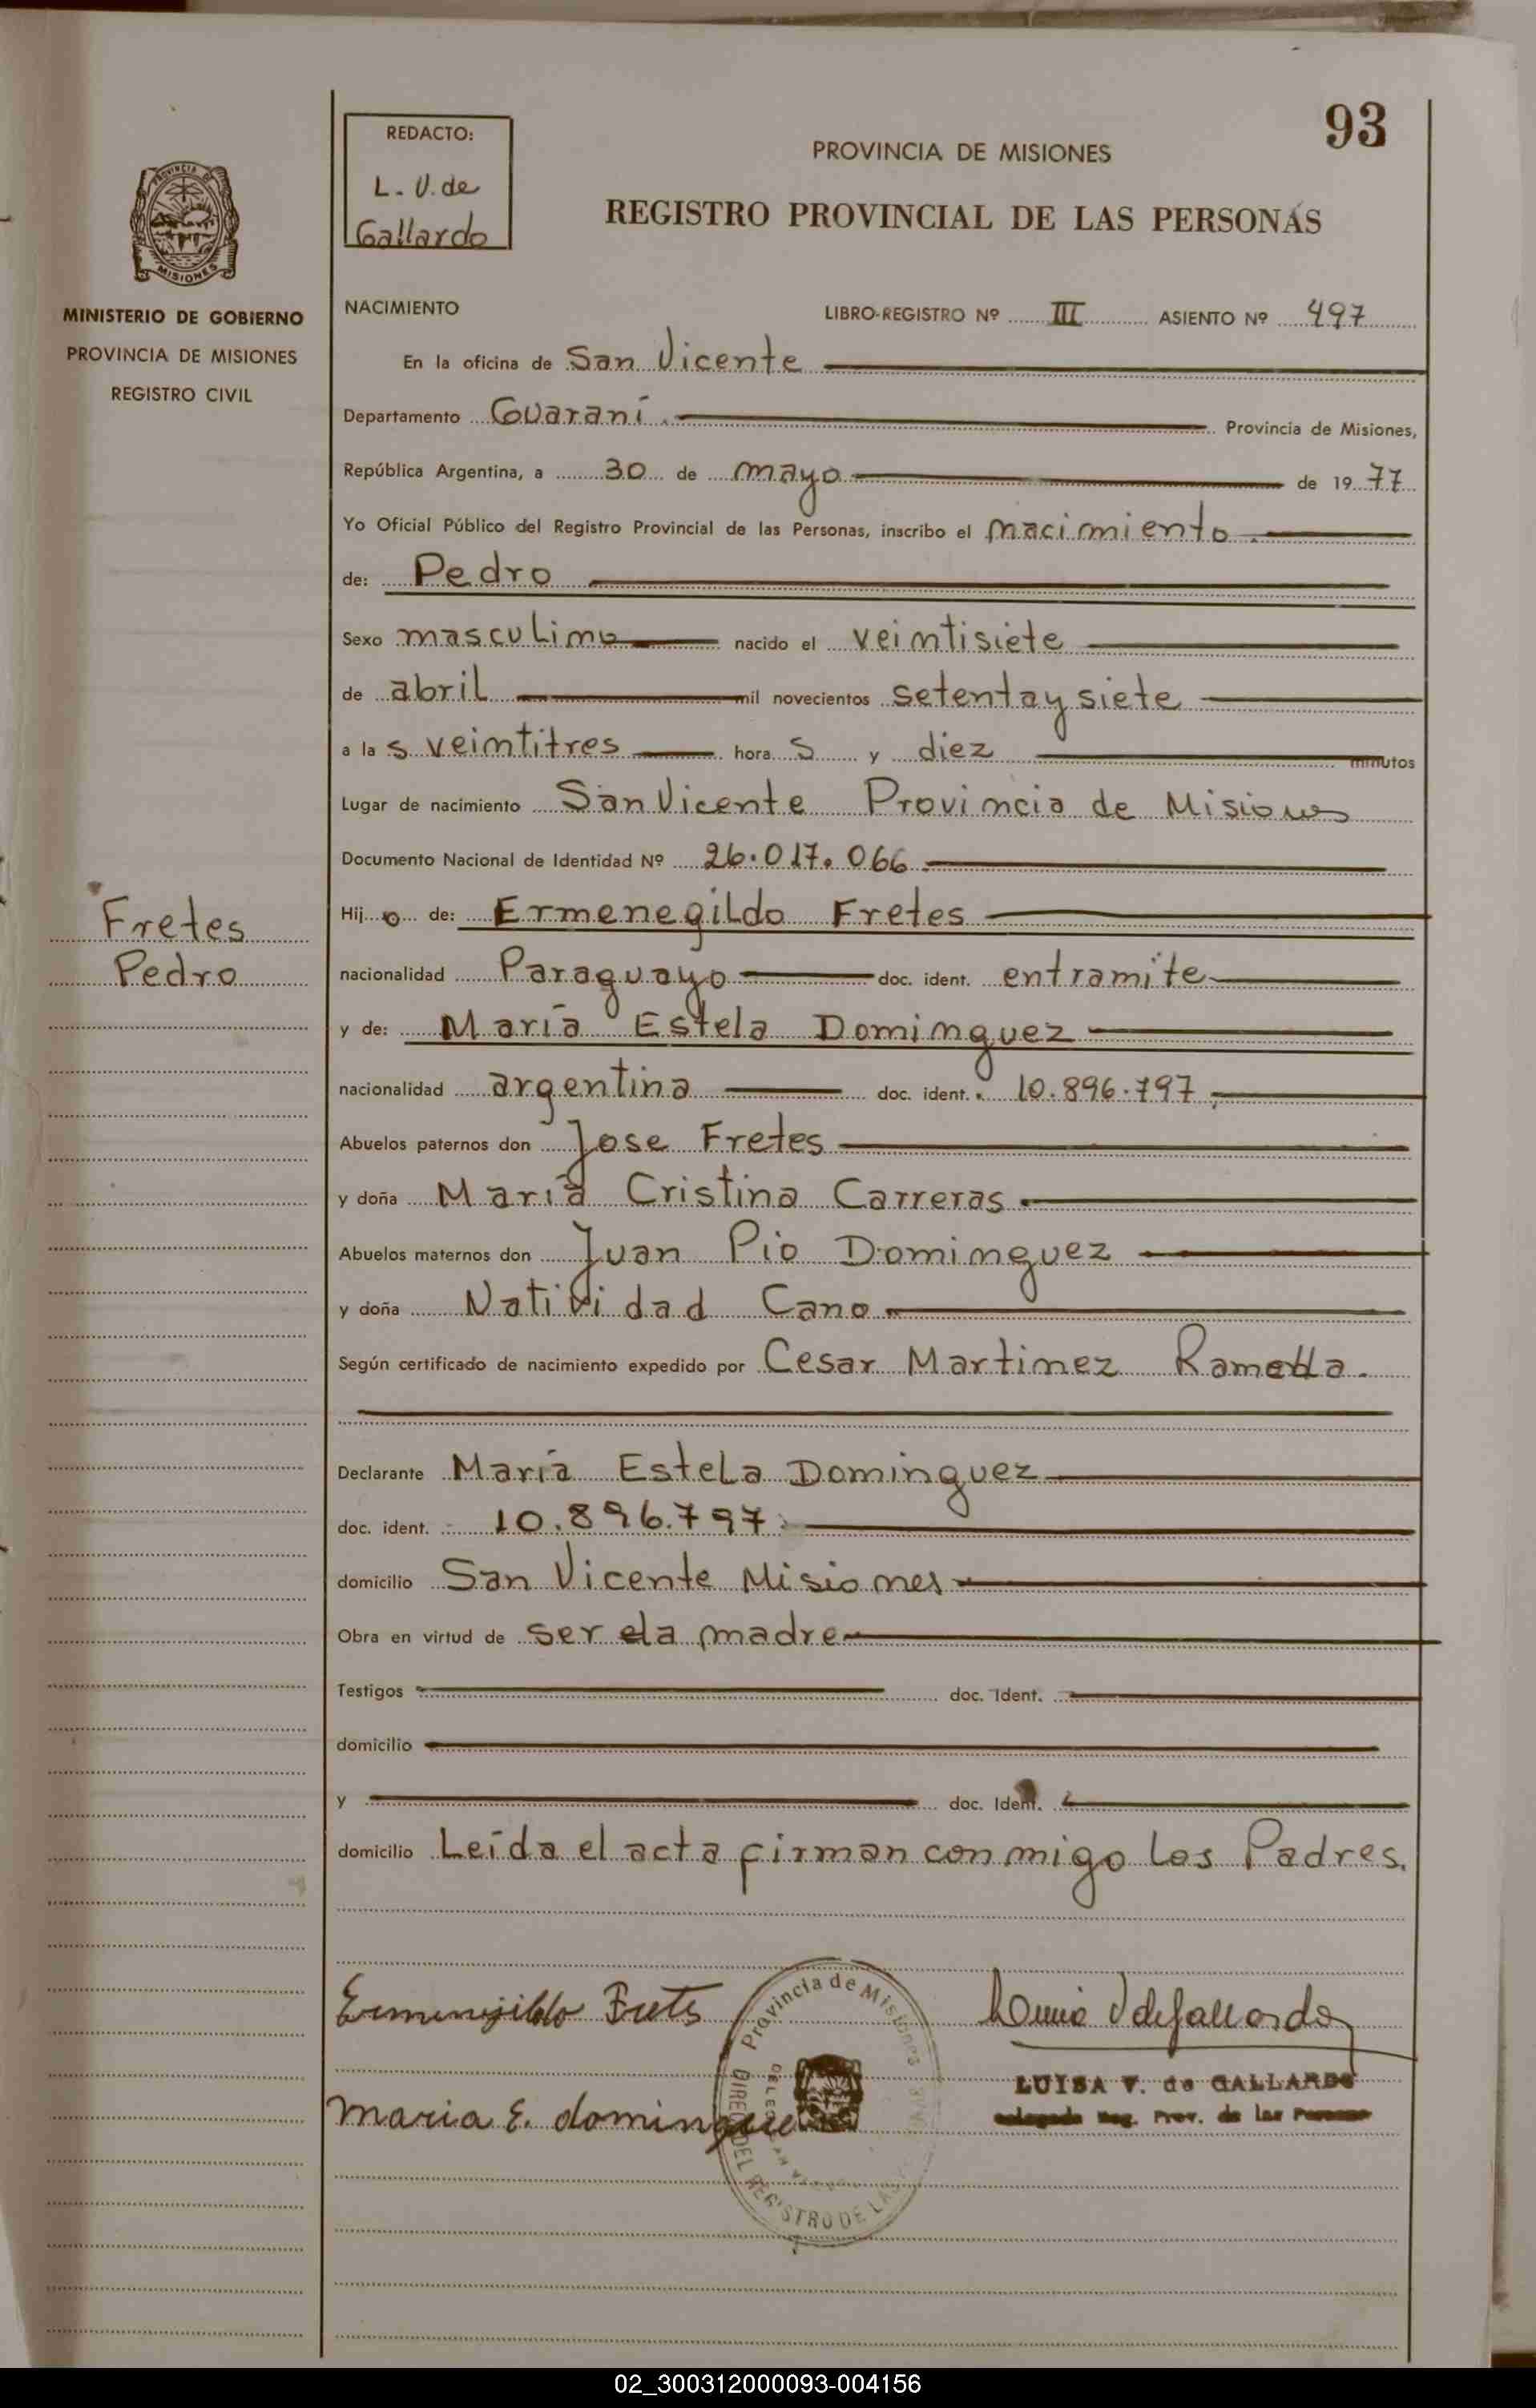 93
REDACTO:
L. V. de
Gallardo
PROVINCIA DE MISIONES
REGISTRO PROVINCIAL DE LAS PERSONAS
PROVINCIA DE
MISIONES
MINISTERIO DE GOBIERNO
PROVINCIA DE MISIONES
REGISTRO CIVIL
NACIMIENTO LIBRO-REGISTRO Nº III ASIENTO Nº 497
En la oficina de San Vicente
Departamento Guaraní. Provincia de Misiones,
República Argentina, a 30 de mayo de 1977
Yo Oficial Público del Registro Provincial de las Personas, inscribo el nacimiento.
de: Pedro
Sexo masculino nacido el veintisiete
de abril mil novecientos setenta y siete
a las veintitres horas y diez minutos
Lugar de nacimiento San Vicente Provincia de Misiones
Documento Nacional de Identidad Nº 26.017.066.
Fretes
Pedro
Hijo de: Ermenegildo Fretes
nacionalidad Paraguayo doc. ident. entramite
y de: María Estela Dominguez
nacionalidad argentina doc. ident. 10.896.797.
Abuelos paternos don Jose Fretes
y doña María Cristina Carreras.
Abuelos maternos don Juan Pio Dominguez
y doña Natividad Cano
Según certificado de nacimiento expedido por Cesar Martinez
Declarante María Estela Dominguez
doc. ident. 10.896.797.
domicilio San Vicente Misiones
Obra en virtud de ser ela madre
Testigos doc. Ident.
domicilio
y doc. Ident.
domicilio Leída el acta firman conmigo los Padres.
Ermenegildo Fretes
Maria E. dominguez
Provincia de Misiones
DEL REGISTRO DE LAS
Luisa V de Gallardo
LUISA V. de GALLARDO
Delegada Reg. Prov. de las Personas
02_300312000093-004156